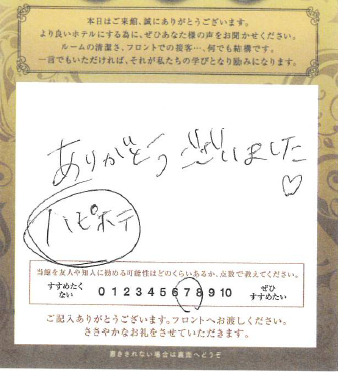 本日はご来館、誠にありがとうございます。
より良いホテルにする為に、ぜひあなた様の声をお聞かせください。
ルームの清潔さ、フロントでの接客…、何でも結構です。
一言でもいただければ、それが私たちの学びとなり励みになります。
ありがとうございました♡
ハピホテ
当館を友人や知人に勧める可能性はどのくらいあるか、点数で教えてください。
すすめたくない 0 1 2 3 4 5 6 7 8 9 10 ぜひすすめたい
ご記入ありがとうございます。フロントへお渡しください。
ささやかなお礼をさせていただきます。
書ききれない場合は裏面へどうぞ